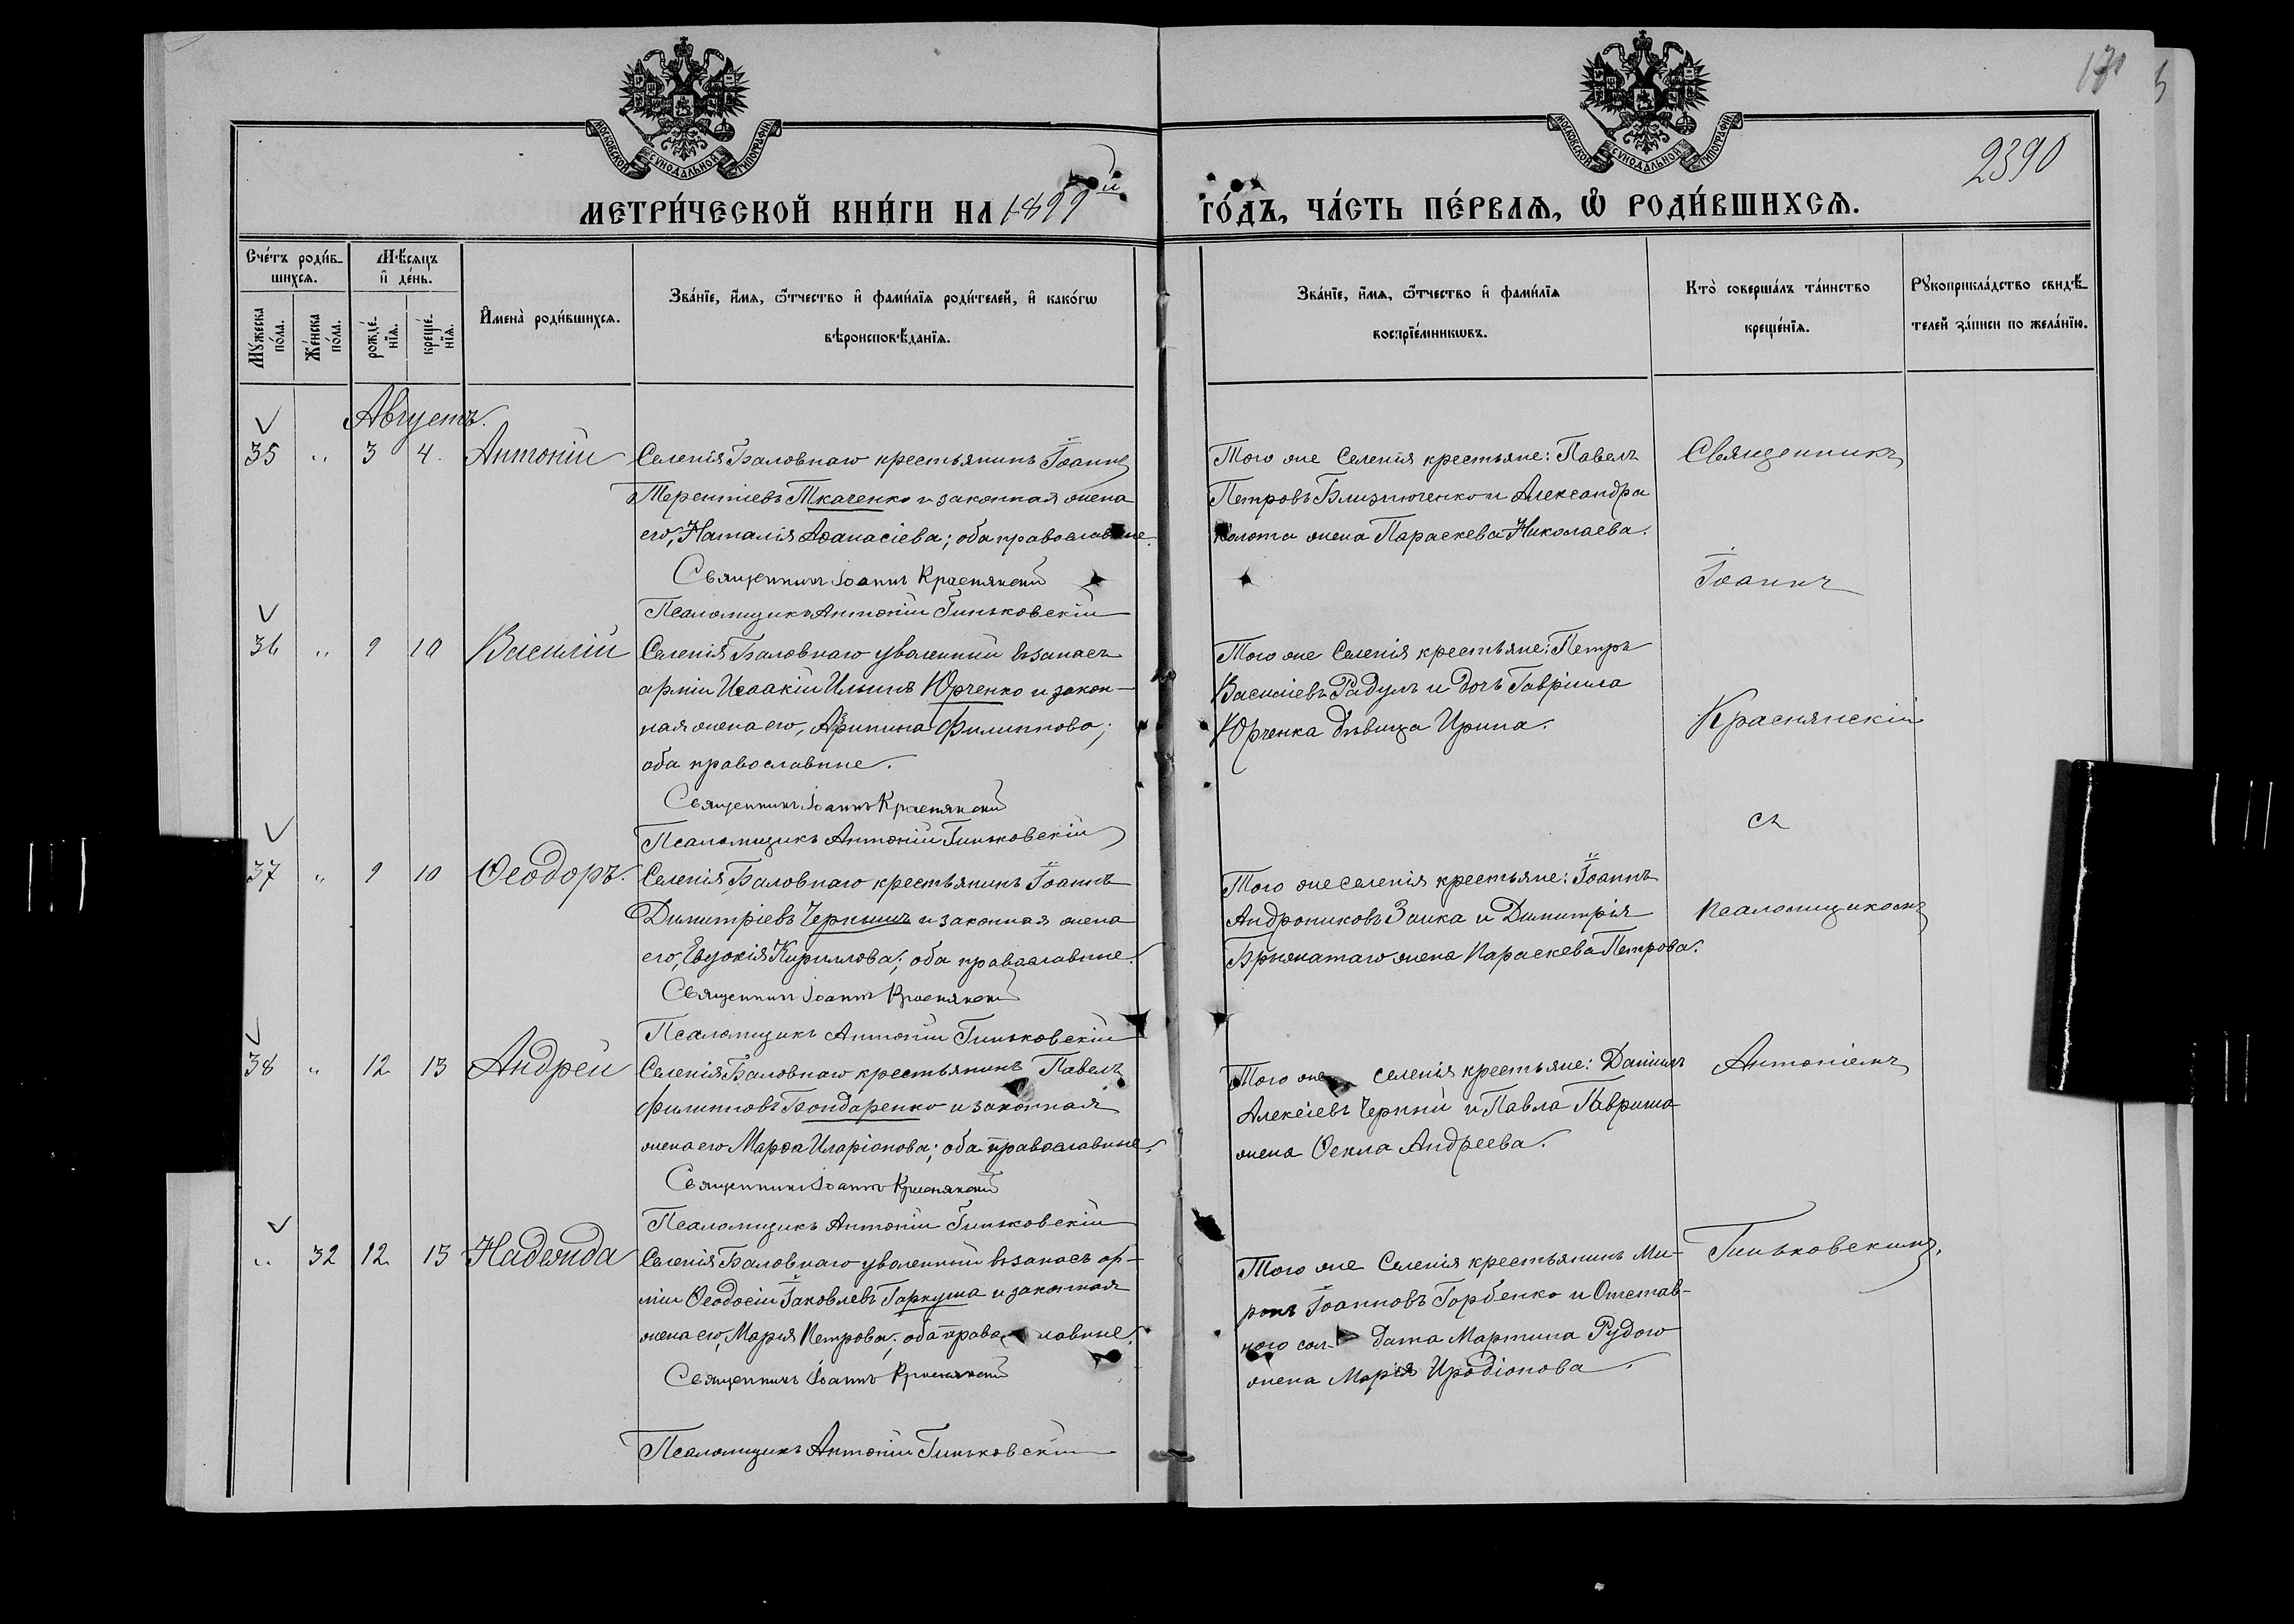 МОСКОВСКОЙ СУНОДАЛЬНОЙ ТИПОГРАФІИ
МОСКОВСКОЙ СУНОДАЛЬНОЙ ТИПОГРАФІИ
2390
МЕТРИ́ЧЕСКОЙ КНИ́ГИ НА 1899й ГО́ДЪ, ЧА́СТЬ ПЕ́РВАѦ, Ѡ РОДИ́ВШИХСѦ.
Сче́тъ роди́вшихсѧ.
Мꙋ́жеска по́ла.
Же́нска по́ла.
Мѣ́сѧцъ и҆ де́нь.
рожде́нїѧ.
креще́нїѧ.
И҆мена̀ роди́вшихсѧ.
Зва́нїе, и҆́мѧ, ѻ҆́тчество и҆ фами́лїѧ роди́телей, и҆ како́гѡ
вѣроисповѣ́данїѧ.
Зва́нїе, и҆́мѧ, ѻ҆́тчество и҆ фами́лїѧ
воспрїе́мникѡвъ.
Кто̀ соверша́лъ та́инство
креще́нїѧ.
Рꙋкоприкла́дство свидѣ́телей за́писи по жела́нїю.
Августъ.
35 " 3 4 Антоній
Селенія Баловнаго крестьянинъ Іоаннъ
Терентіевъ Ткаченко и законная жена
его, Наталія Аѳанасіева; оба православные.
Священникъ Іоаннъ Краснянскій
Псаломщикъ Антоній Гиньковскій
Того же Селенія крестьяне: Павелъ
Петровъ Близнюченко и Александра
Колота жена Параскева Николаева.
36 " 9 10 Василій
Селенія Баловнаго уволенный въ запасъ
арміи Исаакій Ильинъ Юрченко и закон-
ная жена его, Агрипина Филиппова;
оба православные.
Священникъ Іоаннъ Краснянскій
Псаломщикъ Антоній Гиньковскій
Того же Селенія крестьяне: Петръ
Василіевъ Радулъ и дочь Гавріила
Юрченка дѣвица Ирина.
37 " 9 10 Ѳеодоръ.
Селенія Баловнаго крестьянинъ Іоаннъ
Димитріевъ Чернышъ и законная жена
его, Евдокія Кириллова; оба православные.
Священникъ Іоаннъ Краснянскій
Псаломщикъ Антоній Гиньковскій
Того же селенія крестьяне: Іоаннъ
Андрониковъ Заика и Димитрія
жена Параскева Петрова.
38 " 12 13 Андрей
Селенія Баловнаго крестьянинъ Павелъ
Филипповъ Бондаренко и законная
жена его Марѳа Иларіонова; оба православные.
Священникъ Іоаннъ Краснянскій
Псаломщикъ Антоній Гиньковскій
Того же селенія крестьяне: Даніилъ
Алексіевъ Черный и Павла Гавриша
жена Ѳекла Андреева.
" 32 12 13 Надежда
Селенія Баловнаго уволенный въ запасъ ар-
міи Ѳеодосій Іаковлевъ Гаркуша и законная
жена его, Марія Петрова; оба православные.
Священникъ Іоаннъ Краснянскій
Псаломщикъ Антоній Гиньковскій
Того же Селенія крестьянинъ Ми-
ронъ Іоанновъ Горбенко и Отстав-
ного солдата Мартина Рудого
жена Марія Иродіонова.
Священникъ
Іоаннъ
Краснянскій
съ
псаломщикомъ
Антоніемъ
Гиньковскимъ.